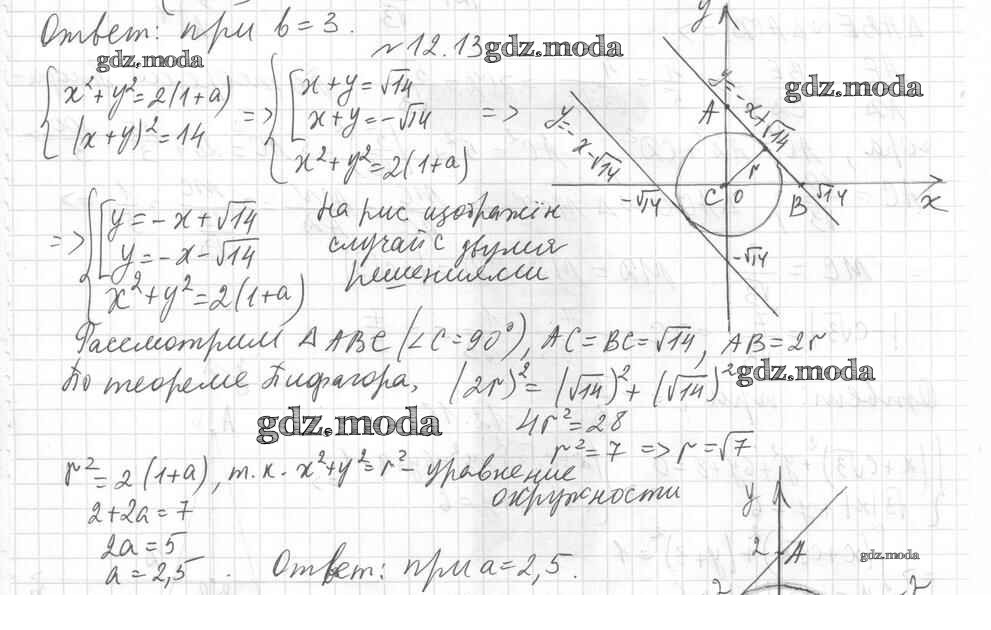 Ответ: при b = 3.
№12.13
gdz.moda
gdz.moda
gdz.moda
{ x²+y²=2(1+a)
(x+y)²=14
=> { [ x+y=√14
x+y=-√14
x²+y²=2(1+a)
=>
=> { [ y=-x+√14
y=-x-√14
x²+y²=2(1+a)
На рис. изображён
случай с двумя
решениями
y
A
y=-x+√14
y=-x-√14
r
-√14
C
0
B
√14
x
-√14
Рассмотрим △ABC (∠C=90°), AC=BC=√14, AB=2r
По теореме Пифагора, (2r)²=(√14)²+(√14)²
gdz.moda
4r²=28
gdz.moda
r²=7 => r=√7
r²=2(1+a), т.к. x²+y²=r² - уравнение
окружности
2+2a=7
2a=5
a=2,5.
Ответ: при a=2,5.
y
2
A
gdz.moda
2
2